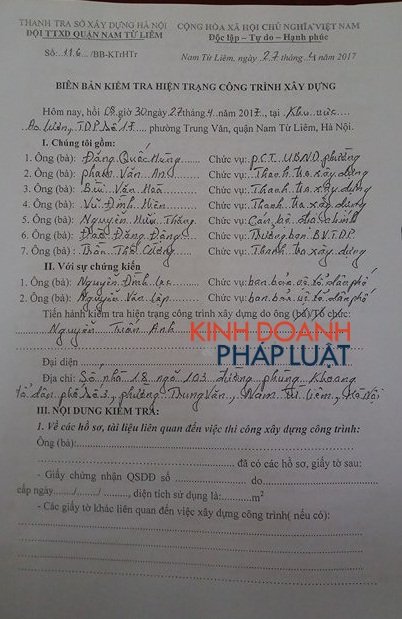 THANH TRA SỞ XÂY DỰNG HÀ NỘI
ĐỘI TTXD QUẬN NAM TỪ LIÊM
Số: 186/BB-KTrHTr
CỘNG HÒA XÃ HỘI CHỦ NGHĨA VIỆT NAM
Độc lập - Tự do - Hạnh phúc
Nam Từ Liêm, ngày 27 tháng 4 năm 2017
BIÊN BẢN KIỂM TRA HIỆN TRẠNG CÔNG TRÌNH XÂY DỰNG
Hôm nay, hồi 08 giờ 30 ngày 27 tháng 4 năm 2017, tại Khu vực
TDP số 17, phường Trung Văn, quận Nam Từ Liêm, Hà Nội.
I. Chúng tôi gồm:
1. Ông (bà): Đặng Quốc Hùng Chức vụ: P.C.T. UBND phường
2. Ông (bà): Phạm Văn Anh Chức vụ: Thanh tra xây dựng
3. Ông (bà): Bùi Văn Hoà Chức vụ: Thanh tra xây dựng
4. Ông (bà): Vũ Đình Hiên Chức vụ: Thanh tra xây dựng
5. Ông (bà): Nguyễn Hữu Thắng Chức vụ: Cán bộ địa chính
6. Ông (bà): Đào Đăng Chức vụ: Trưởng ban B.V.T.D.P
7. Ông (bà): Trần Thế Cường Chức vụ: Thanh tra xây dựng
II. Với sự chứng kiến
1. Ông (bà): Nguyễn Đình Chức vụ: ban bảo vệ tổ dân phố
2. Ông (bà): Nguyễn Văn Lập Chức vụ: ban bảo vệ tổ dân phố
Tiến hành kiểm tra hiện trạng công trình xây dựng do ông (bà)/Tổ chức:
Nguyễn Tuấn Anh
KINH DOANH
PHÁP LUẬT
Đại diện
Địa chỉ: Số nhà 18 ngõ 103 đường phùng Khoang
tổ dân phố số 3, phường Trung Văn, Nam Từ Liêm, Hà Nội
III. NỘI DUNG KIỂM TRA:
1. Về các hồ sơ, tài liệu liên quan đến việc thi công xây dựng công trình:
Ông (bà):
đã có các hồ sơ, giấy tờ sau:
- Giấy chứng nhận QSDĐ số do
cấp ngày / / , diện tích sử dụng là: m²
- Các giấy tờ khác liên quan đến việc xây dựng công trình( nếu có):